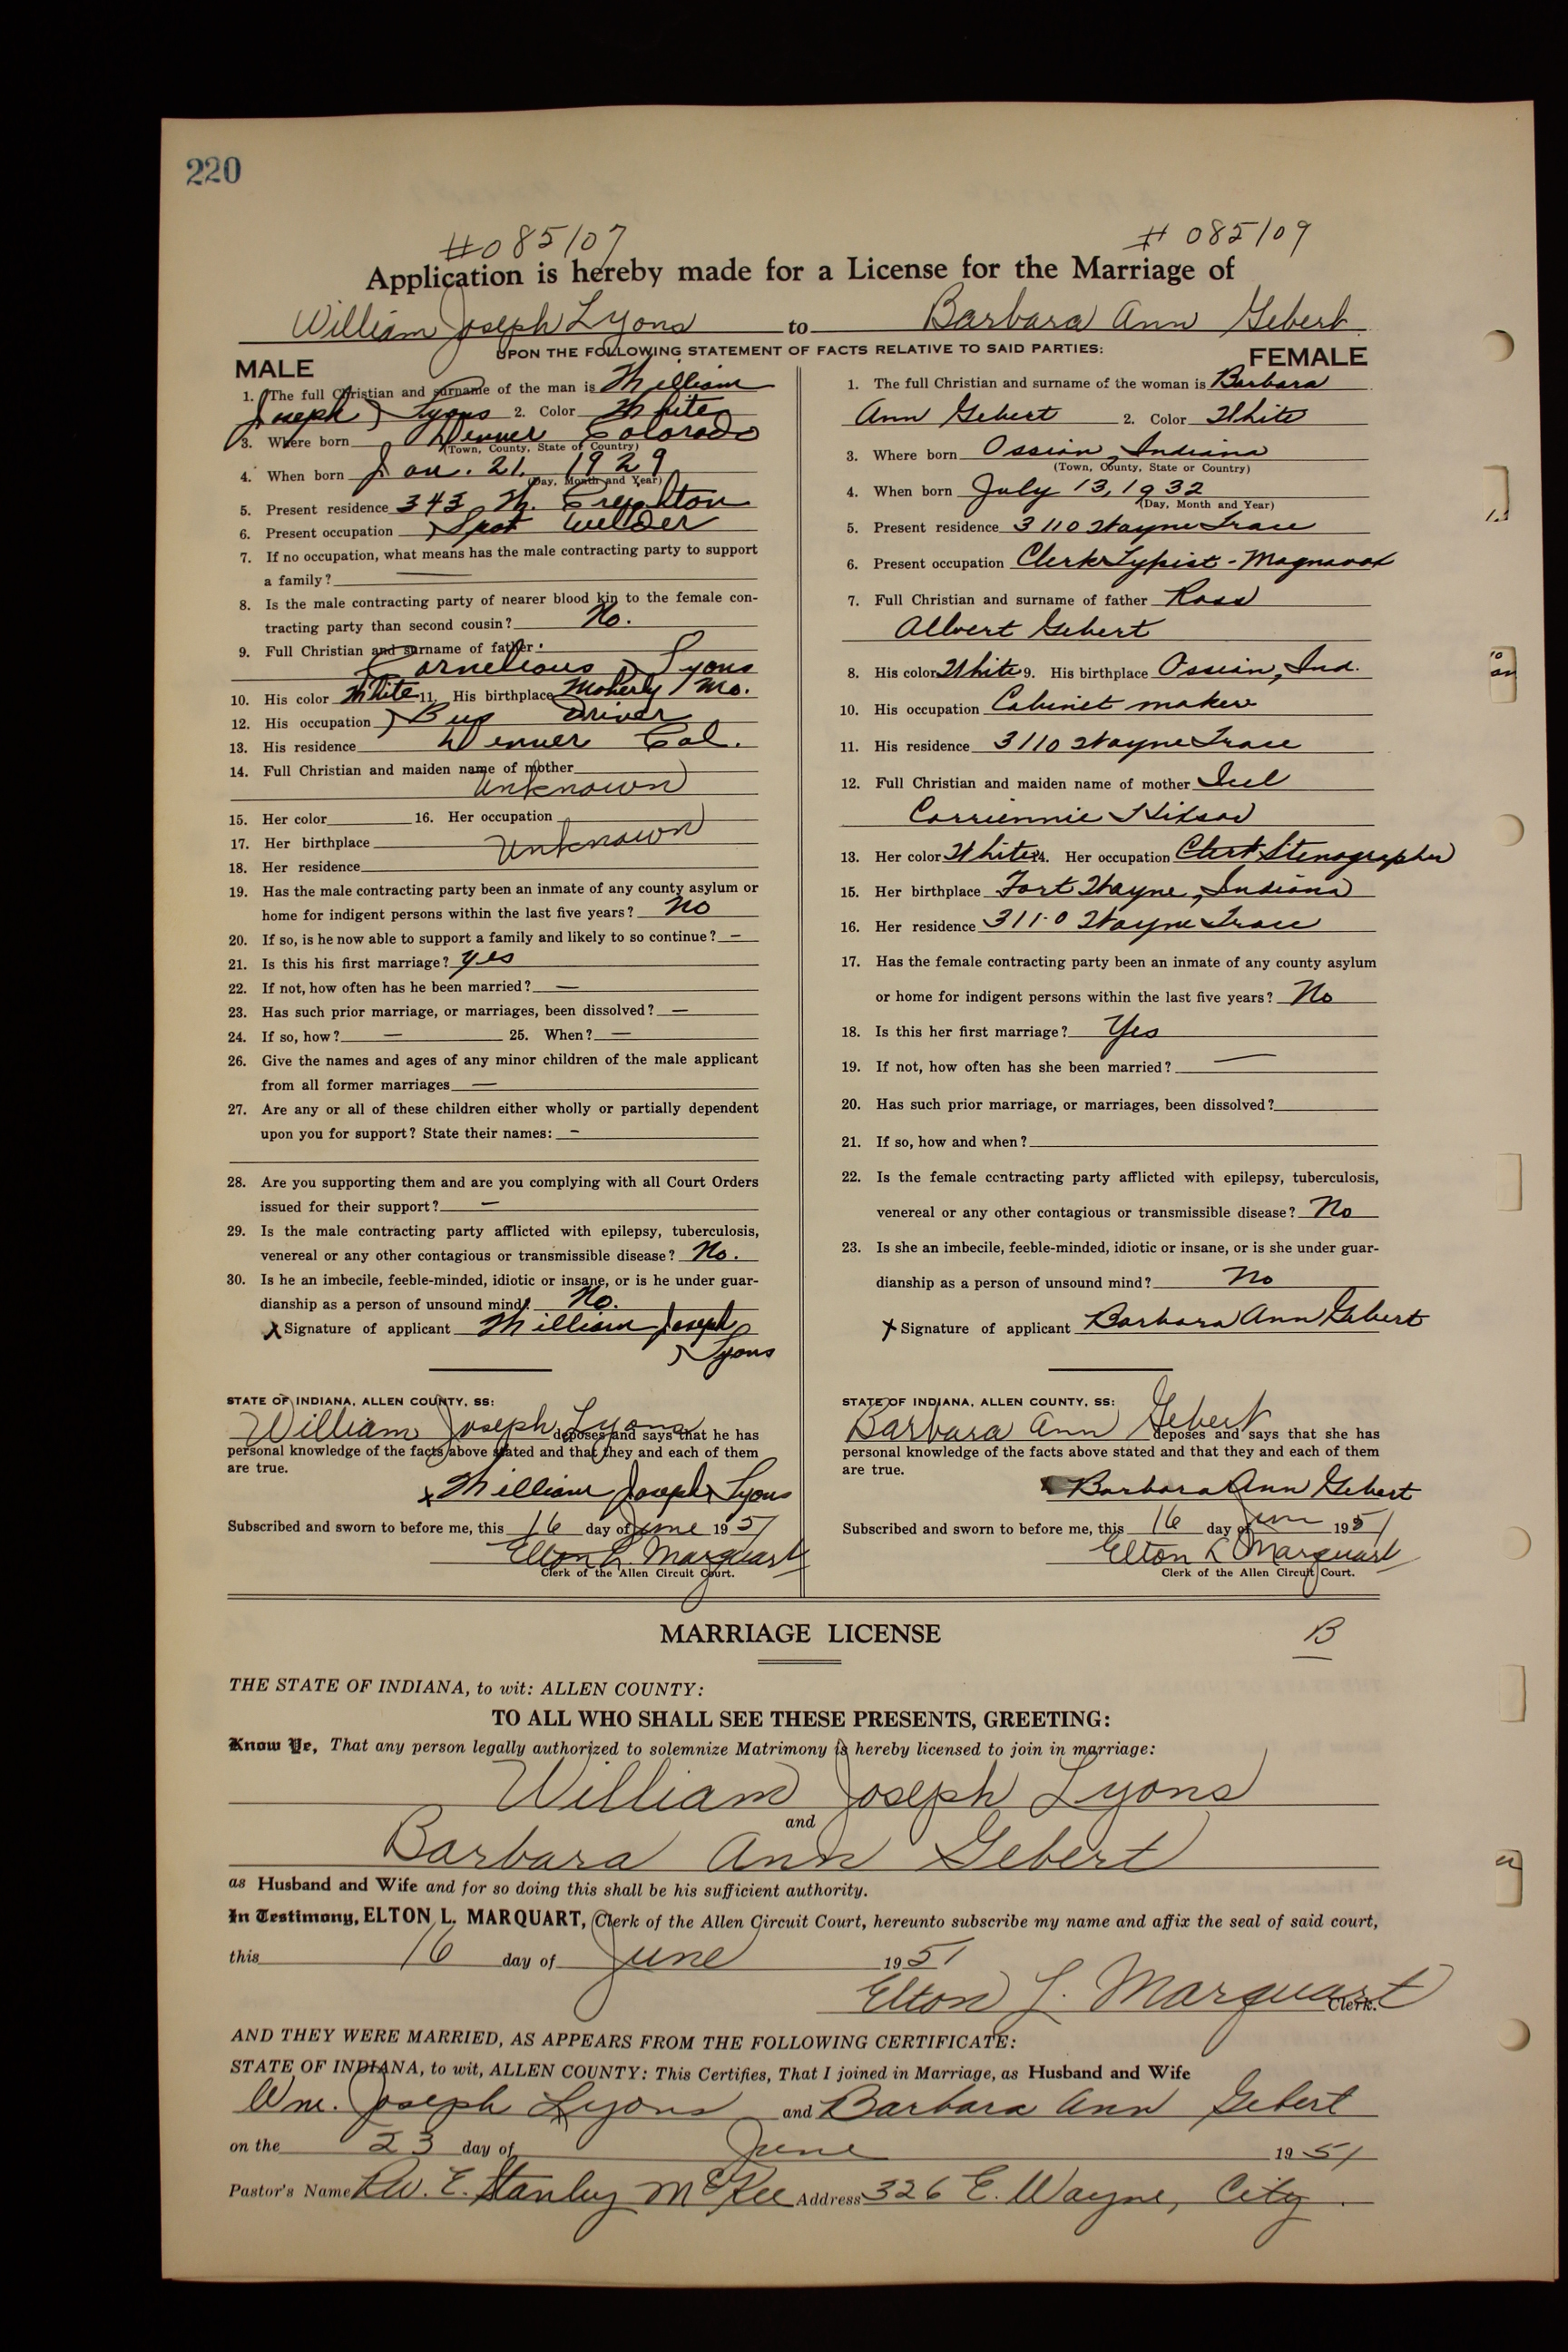 220
#085107 # 085109
Application is hereby made for a License for the Marriage of
William Joseph Lyons to Barbara Ann Gebert
UPON THE FOLLOWING STATEMENT OF FACTS RELATIVE TO SAID PARTIES:
MALE
1. The full Christian and surname of the man is William
Joseph Lyons 2. Color White
3. Where born Denver Colorado
(Town, County, State of Country)
4. When born Jan. 21, 1929
(Day, Month and Year)
5. Present residence 343 W. Creighton
6. Present occupation Spot Welder
7. If no occupation, what means has the male contracting party to support
a family? —
8. Is the male contracting party of nearer blood kin to the female con-
tracting party than second cousin? No.
9. Full Christian and surname of father
Cornelious Lyons
10. His color White 11. His birthplace Moberly Mo.
12. His occupation Bus Driver
13. His residence Denver Col.
14. Full Christian and maiden name of mother
Unknown
15. Her color 16. Her occupation
17. Her birthplace Unknown
18. Her residence
19. Has the male contracting party been an inmate of any county asylum or
home for indigent persons within the last five years? No
20. If so, is he now able to support a family and likely to so continue? —
21. Is this his first marriage? yes
22. If not, how often has he been married? —
23. Has such prior marriage, or marriages, been dissolved? —
24. If so, how? — 25. When? —
26. Give the names and ages of any minor children of the male applicant
from all former marriages —
27. Are any or all of these children either wholly or partially dependent
upon you for support? State their names: —
28. Are you supporting them and are you complying with all Court Orders
issued for their support? —
29. Is the male contracting party afflicted with epilepsy, tuberculosis,
venereal or any other contagious or transmissible disease? No.
30. Is he an imbecile, feeble-minded, idiotic or insane, or is he under guar-
dianship as a person of unsound mind? No.
x Signature of applicant William Joseph
Lyons
STATE OF INDIANA, ALLEN COUNTY, SS:
William Joseph Lyons deposes and says that he has
personal knowledge of the facts above stated and that they and each of them
are true.
x William Joseph Lyons
Subscribed and sworn to before me, this 16 day of June 1951
Elton L. Marquart
Clerk of the Allen Circuit Court.
FEMALE
1. The full Christian and surname of the woman is Barbara
Ann Gebert 2. Color White
3. Where born Ossian, Indiana
(Town, County, State or Country)
4. When born July 13, 1932
(Day, Month and Year)
5. Present residence 3110 Wayne Trace
6. Present occupation Clerk Typist - Magnavox
7. Full Christian and surname of father Ross
Albert Gebert
8. His color White 9. His birthplace Ossian, Ind.
10. His occupation Cabinet maker
11. His residence 3110 Wayne Trace
12. Full Christian and maiden name of mother
13. Her color White 14. Her occupation Clerk Stenographer
15. Her birthplace Fort Wayne, Indiana
16. Her residence 3110 Wayne Trace
17. Has the female contracting party been an inmate of any county asylum
or home for indigent persons within the last five years? No
18. Is this her first marriage? Yes
19. If not, how often has she been married? —
20. Has such prior marriage, or marriages, been dissolved?
21. If so, how and when?
22. Is the female contracting party afflicted with epilepsy, tuberculosis,
venereal or any other contagious or transmissible disease? No
23. Is she an imbecile, feeble-minded, idiotic or insane, or is she under guar-
dianship as a person of unsound mind? No
x Signature of applicant Barbara Ann Gebert
STATE OF INDIANA, ALLEN COUNTY, SS:
Barbara Ann Gebert deposes and says that she has
personal knowledge of the facts above stated and that they and each of them
are true.
x Barbara Ann Gebert
Subscribed and sworn to before me, this 16 day of June 1951
Elton L Marquart
Clerk of the Allen Circuit Court.
MARRIAGE LICENSE B
THE STATE OF INDIANA, to wit: ALLEN COUNTY:
TO ALL WHO SHALL SEE THESE PRESENTS, GREETING:
Know Ye, That any person legally authorized to solemnize Matrimony is hereby licensed to join in marriage:
William Joseph Lyons
and
Barbara Ann Gebert
as Husband and Wife and for so doing this shall be his sufficient authority.
In Testimony, ELTON L. MARQUART, Clerk of the Allen Circuit Court, hereunto subscribe my name and affix the seal of said court,
this 16 day of June 1951
Elton L. Marquart
Clerk.
AND THEY WERE MARRIED, AS APPEARS FROM THE FOLLOWING CERTIFICATE:
STATE OF INDIANA, to wit, ALLEN COUNTY: This Certifies, That I joined in Marriage, as Husband and Wife
Wm. Joseph Lyons and Barbara Ann Gebert
on the 23 day of June 1951
Pastor's Name Rev. E. Stanley McKee Address 326 E. Wayne, City.